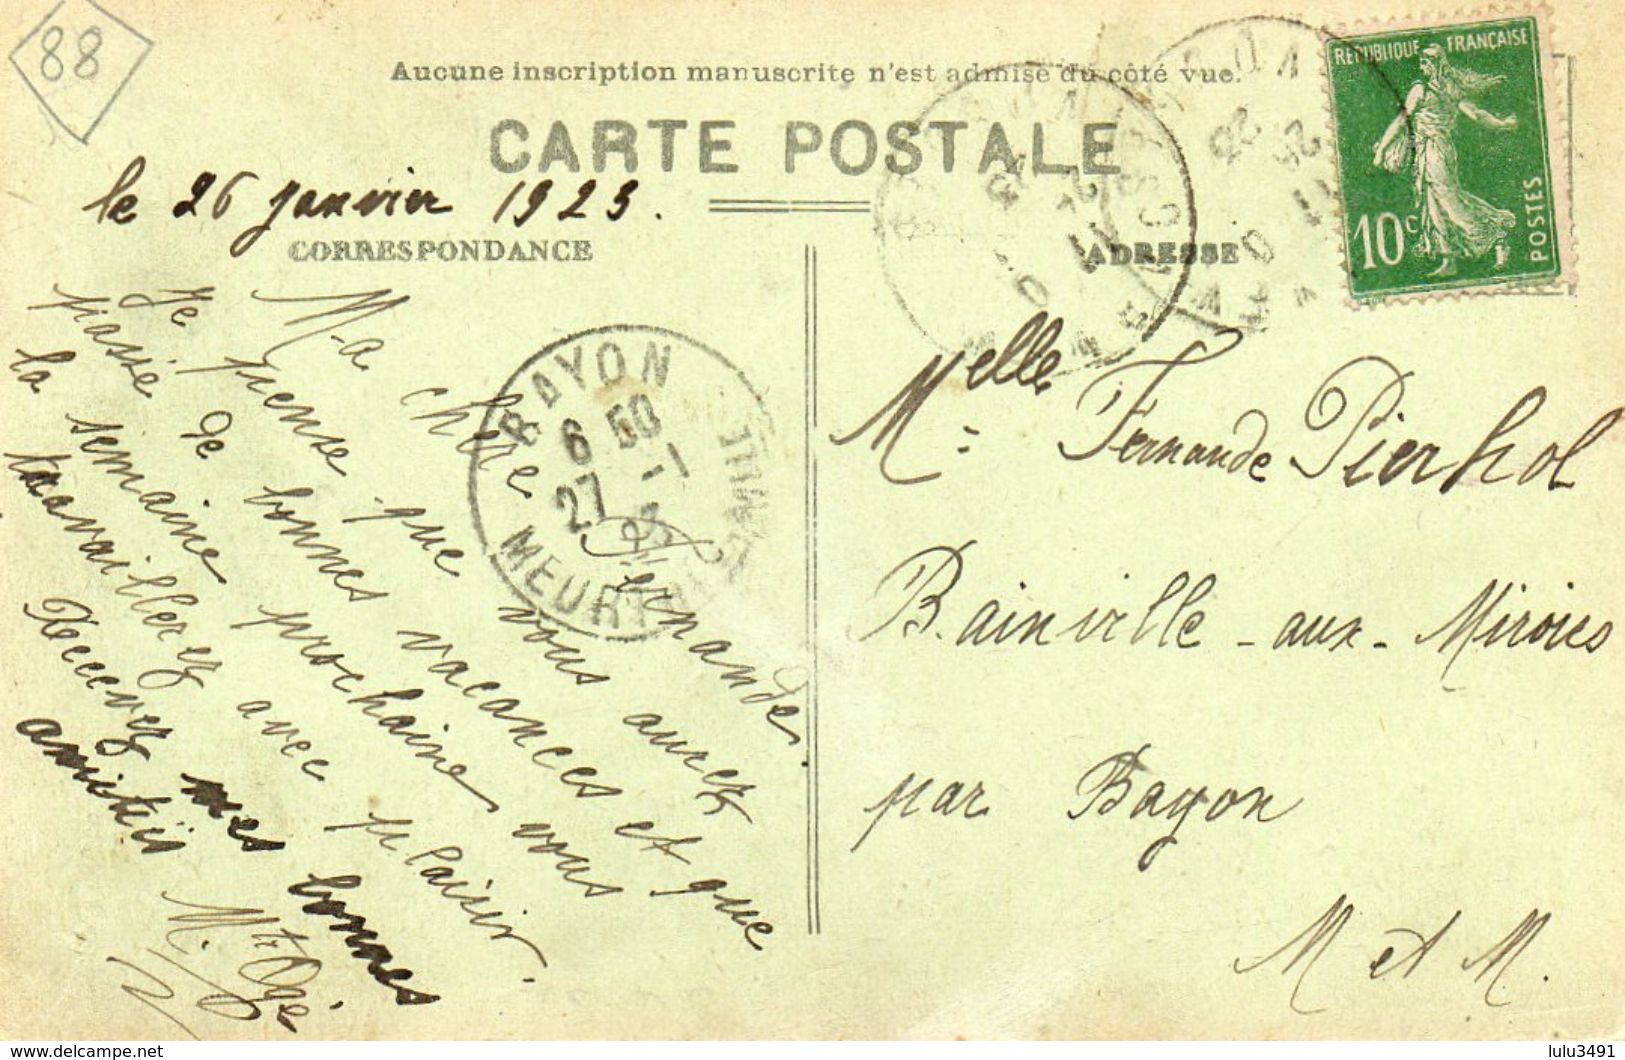 88
Aucune inscription manuscrite n'est admise du côté vue.
CARTE POSTALE
le 26 janvier 1923.
CORRESPONDANCE
ADRESSE
REPUBLIQUE FRANÇAISE
10c
POSTES
BAYON
6 50
27 -1
MEURTHE
Ma chère Fernande.
Je pense que vous aurez
passé de bonnes vacances et que
la semaine prochaine vous
travaillerez avec plaisir.
Recevez mes bonnes
amitiés
Melle Fernande Pierhol
Bainville-aux-Miroirs
par Bayon
M et M.
www.delcampe.net
lulu3491